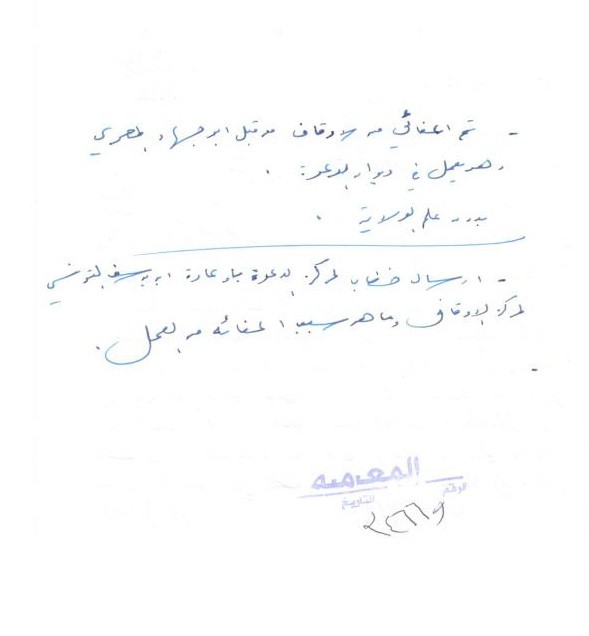 - تم اعفائي من الاوقاف من قبل ابو جهاد المصري
وهو يعمل في ديوان الدعوة .
بدون علم الولاية .
- ارسال خطاب لمركز الدعوة باعادة ابو يوسف التونسي
لمركز الاوقاف وما هو سبب اعفائه من العمل .
-
المعـ
الرقم
التاريخ